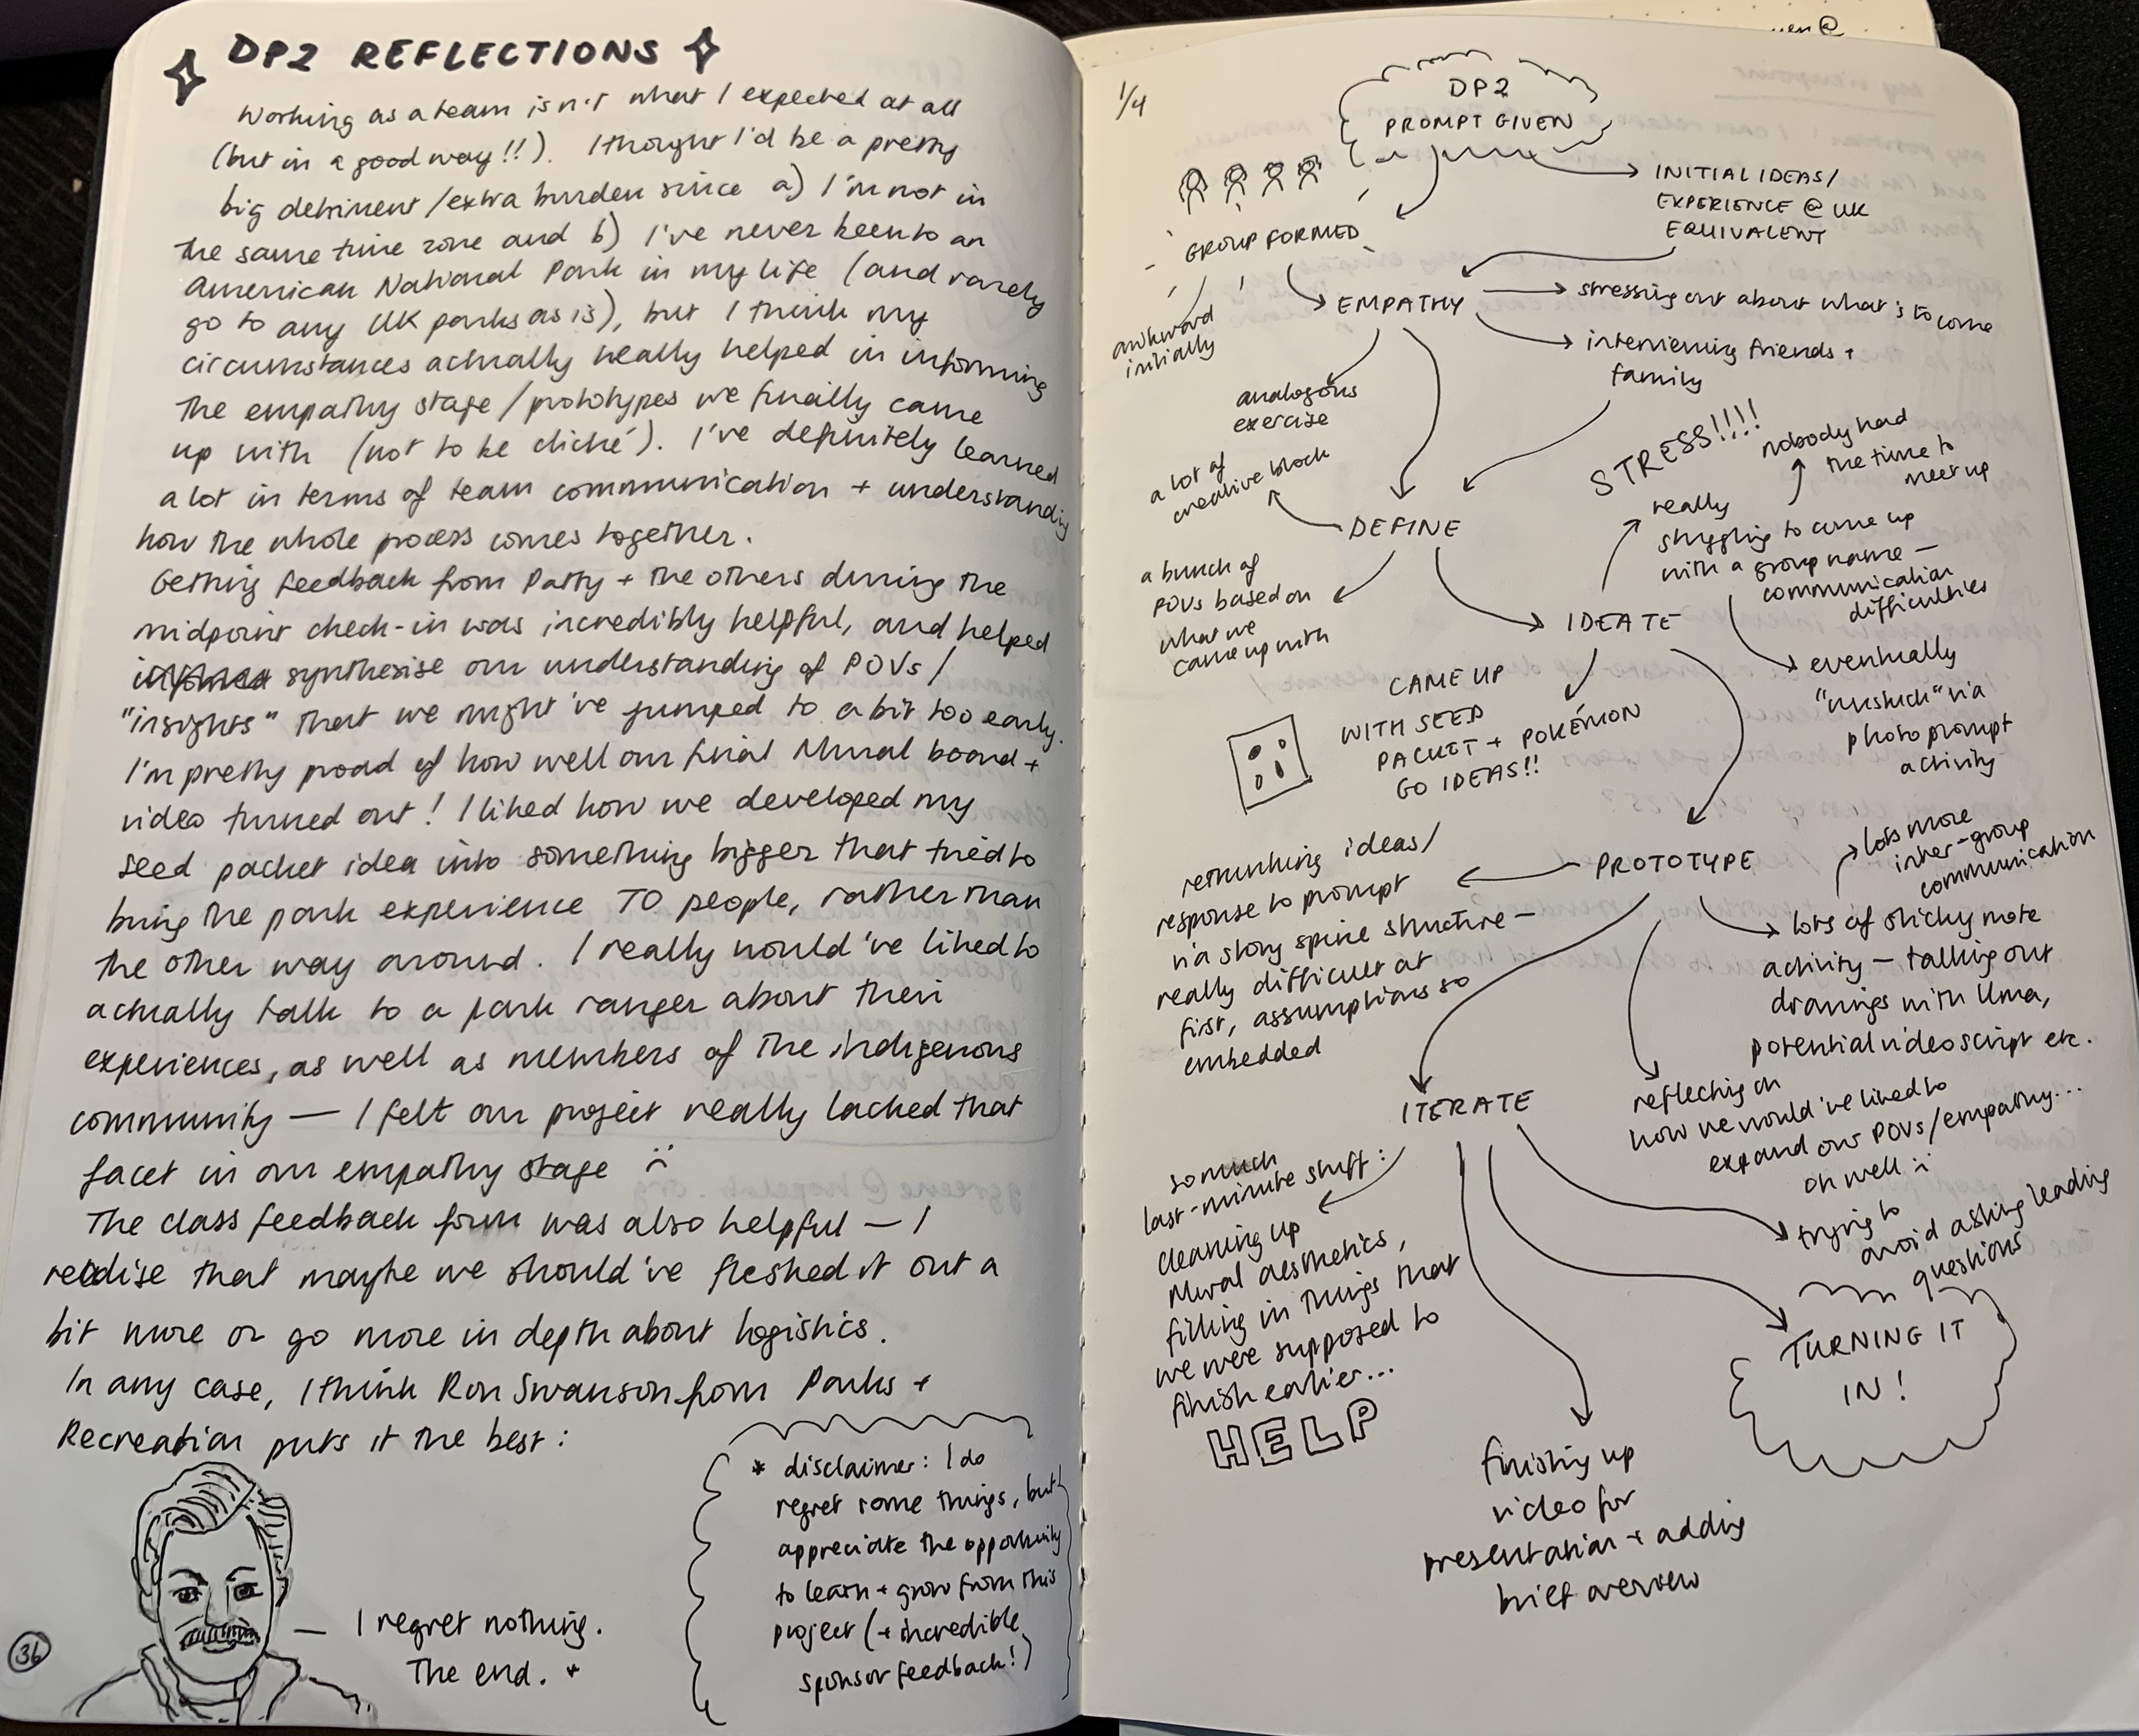 DP2 REFLECTIONS
Working as a team isn't what I expected at all
(but in a good way!!). I thought I'd be a pretty
big detriment/extra burden since a) I'm not in
the same time zone and b) I've never been to an
American National Park in my life (and rarely
go to any UK parks as is), but I think my
circumstances actually really helped in informing
the empathy stage/prototypes we finally came
up with (not to be cliché). I've definitely learned
a lot in terms of team communication + understanding
how the whole process comes together.
Getting feedback from Patty + the others during the
midpoint check-in was incredibly helpful, and helped
synthesise our understanding of POVs/
"insights" that we might've jumped to a bit too early.
I'm pretty proud of how well our final Mural board +
video turned out! I liked how we developed my
seed packet idea into something bigger that tried to
bring the park experience TO people, rather than
the other way around. I really would've liked to
actually talk to a park ranger about their
experiences, as well as members of the indigenous
community — I felt our project really lacked that
facet in our empathy stage :(
The class feedback form was also helpful — I
realise that maybe we should've fleshed it out a
bit more or go more in depth about logistics.
In any case, I think Ron Swanson from Parks +
Recreation puts it the best:
— I regret nothing.
The end. *
* disclaimer: I do
regret some things, but
appreciate the opportunity
to learn + grow from this
project (+ incredible
sponsor feedback!)
36
1/4
DP2
PROMPT GIVEN
INITIAL IDEAS/
EXPERIENCE @ UK
EQUIVALENT
GROUP FORMED
awkward
initially
EMPATHY
stressing out about what's to come
interviewing friends +
family
analogous
exercise
DEFINE
a lot of
creative block
a bunch of
POVs based on
what we
came up with
IDEATE
STRESS!!!!
nobody had
the time to
meet up
really
struggling to come up
with a group name —
communication
difficulties
eventually
"unstuck" via
photo prompt
activity
CAME UP
WITH SEED
PACKET + POKÉMON
GO IDEAS!!
PROTOTYPE
lots more
inter-group
communication
rethinking ideas/
response to prompt
via story spine structure —
really difficult at
first, assumptions so
embedded
lots of sticky note
activity — talking out
drawings with Uma,
potential video script etc.
reflecting on
how we would've liked to
expand our POVs/empathy...
oh well :(
ITERATE
so much
last-minute stuff:
cleaning up
Mural aesthetics,
filling in things that
we were supposed to
finish earlier...
HELP
trying to
avoid asking leading
questions
TURNING IT
IN!
finishing up
video for
presentation + adding
brief overview